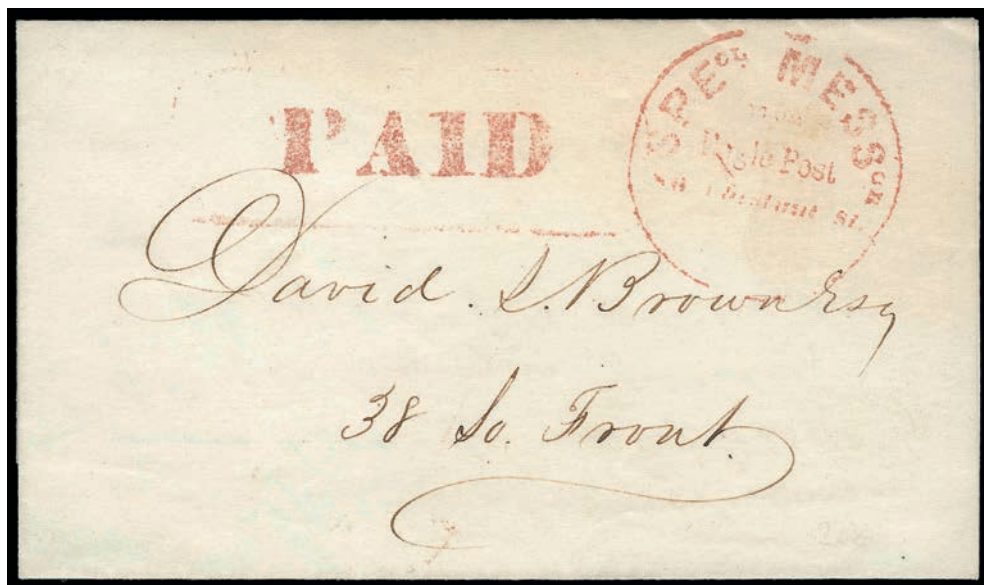 PAID
SPE^CL MESS^GR
Eagle Post
Chestnut St.
David. S. Brown Esq
38 So. Front.